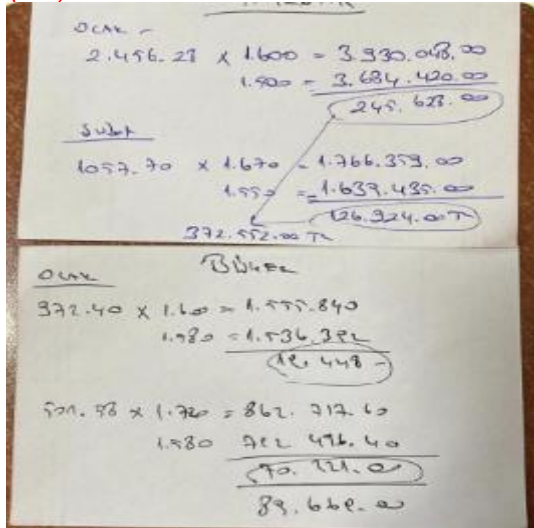 OCAK -
2.456.28 x 1.600 = 3.930.048.00
1.500 = 3.684.420.00
245.628.00
Şubat
1057.70 x 1.670 = 1.766.359.00
1.550 = 1.639.435.00
126.924.00 TL
372.552.00 TL
OCAK
972.40 x 1.600 = 1.555.840
1.580 = 1.536.392
19.448 -
501.58 x 1.720 = 862.717.60
1.580 792 496.40
70.221.00
89.669.00